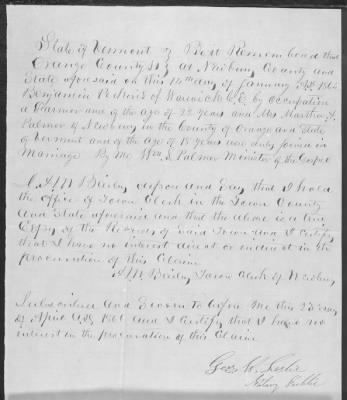 State of Vermont } Be it Remembered that
Orange County SS } at Newbury County and
State aforesaid on this 14th day of January
Benjamin Perkins of Warwick C.E. by Occupation
a Farmer and of the age of 22 years and Mrs Martha A
Palmer of Newbury in the County of Orange and State
of Vermont and of the age of 18 years were duly joined in
Marriage By Me Wm S Palmer Minister of the Gospel
depose and Say that I hold
the Office of Town Clerk in the Town County
and State aforesaid and that the above is a true
Copy of the Records of Said Town and I Certify
that I have no interest direct or indirect in the
prosecution of this Claim
Town Clerk of Newbury
Subscribed and Sworn to before me this 25 day
of April and I Certify that I have no
interest in the prosecution of this Claim
Geo W. Leslie
Notary Public